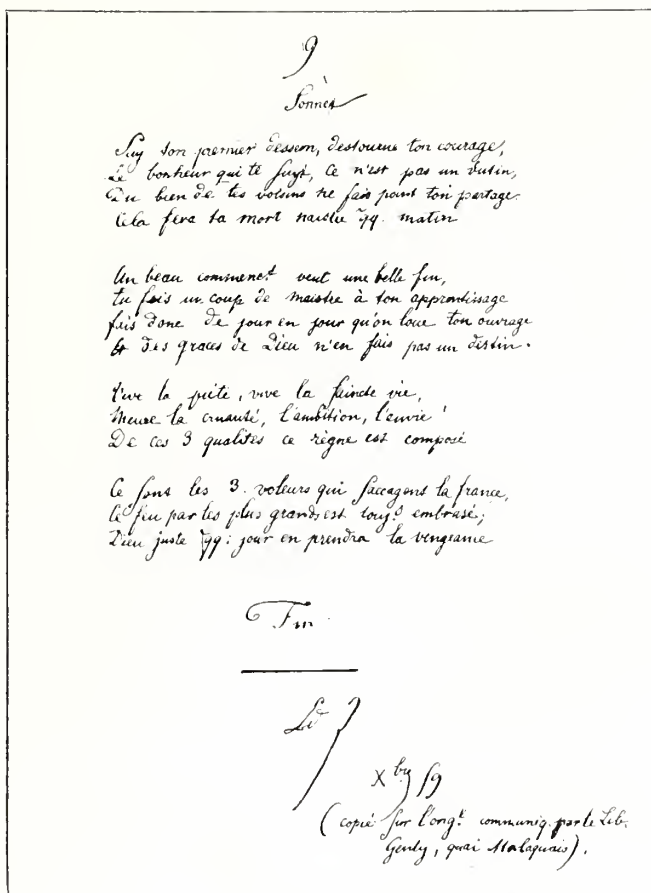 9
Sonnet
Suy ton premier dessein, destourne ton courage,
Le bonheur qui te suyt, ce n'est pas un butin,
Du bien de tes voisins ne fais point ton partage
Cela fera ta mort naistre qq. matin
Un beau commencᵗ veut une belle fin,
tu fais un coup de maistre à ton apprentissage
fais donc de jour en jour qu'on loue ton ouvrage
& des graces de Dieu n'en fais pas un destin.
Vive la piété, vive la saincte vie,
Meure la cruauté, l'ambition, l'envie !
De ces 3 qualités ce règne est composé
Ce sont les 3 voleurs qui saccagent la france,
le feu par les plus grands est toujˢ embrasé;
Dieu juste qq: jour en prendra la vengeance
Fin.
Xbre 59
(copié sur l'origˡ communiq. par le Lib.
Genty, quai Malaquais).